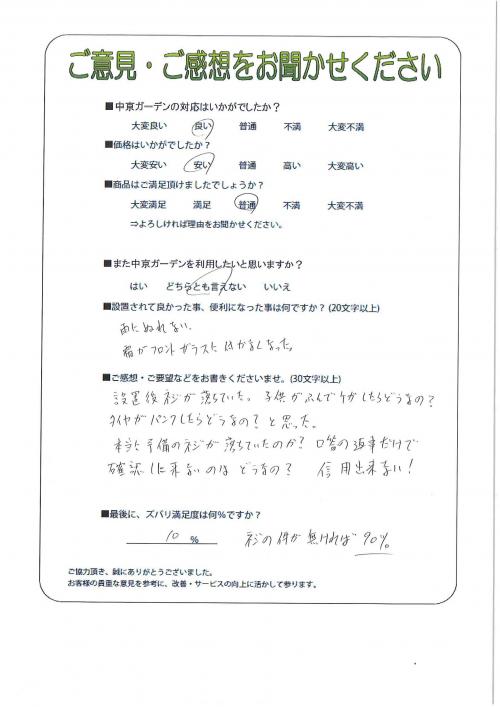 ご意見・ご感想をお聞かせください
■中京ガーデンの対応はいかがでしたか？
大変良い 良い 普通 不満 大変不満
■価格はいかがでしたか？
大変安い 安い 普通 高い 大変高い
■商品はご満足頂けましたでしょうか？
大変満足 満足 普通 不満 大変不満
⇒よろしければ理由をお聞かせください。
■また中京ガーデンを利用したいと思いますか？
はい どちらとも言えない いいえ
■設置されて良かった事、便利になった事は何ですか？(20文字以上)
雨にぬれない。
霜がフロントガラスに付かなくなった。
■ご感想・ご要望などをお書きくださいませ。(30文字以上)
設置後ネジが落ちていた。子供がふんでケガしたらどうなの？
タイヤがパンクしたらどうなの？と思った。
本当に予備のネジが落ちていたのか？口答の返事だけで
確認しに来ないのはどうなの？ 信用出来ない！
■最後に、ズバリ満足度は何％ですか？
10 % ネジの件が無ければ90%
ご協力頂き、誠にありがとうございました。
お客様の貴重な意見を参考に、改善・サービスの向上に活かして参ります。